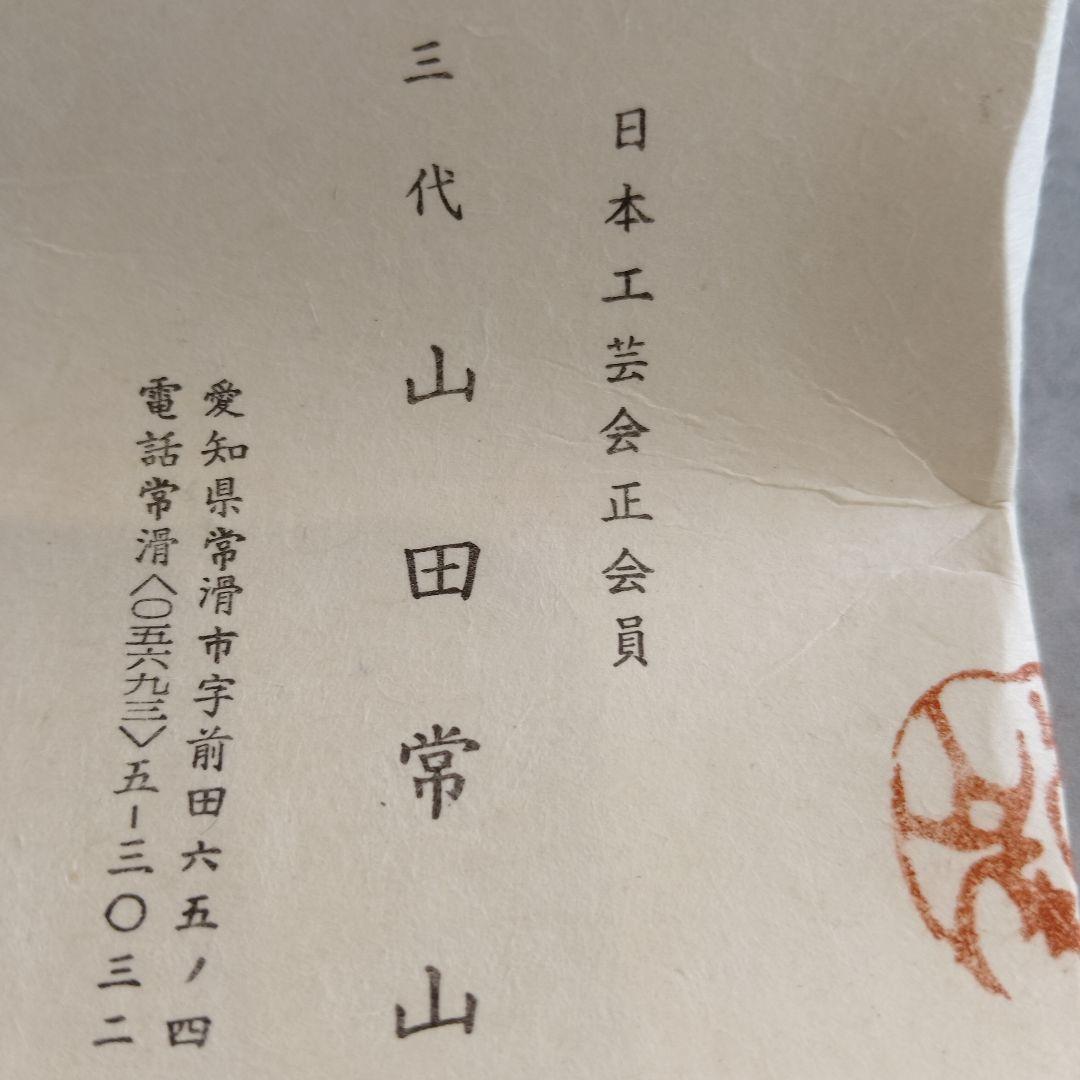 日本工芸会正会員
三代 山田常山
愛知県常滑市字前田六五ノ四
電話常滑〈〇五六九三〉五-三〇三二